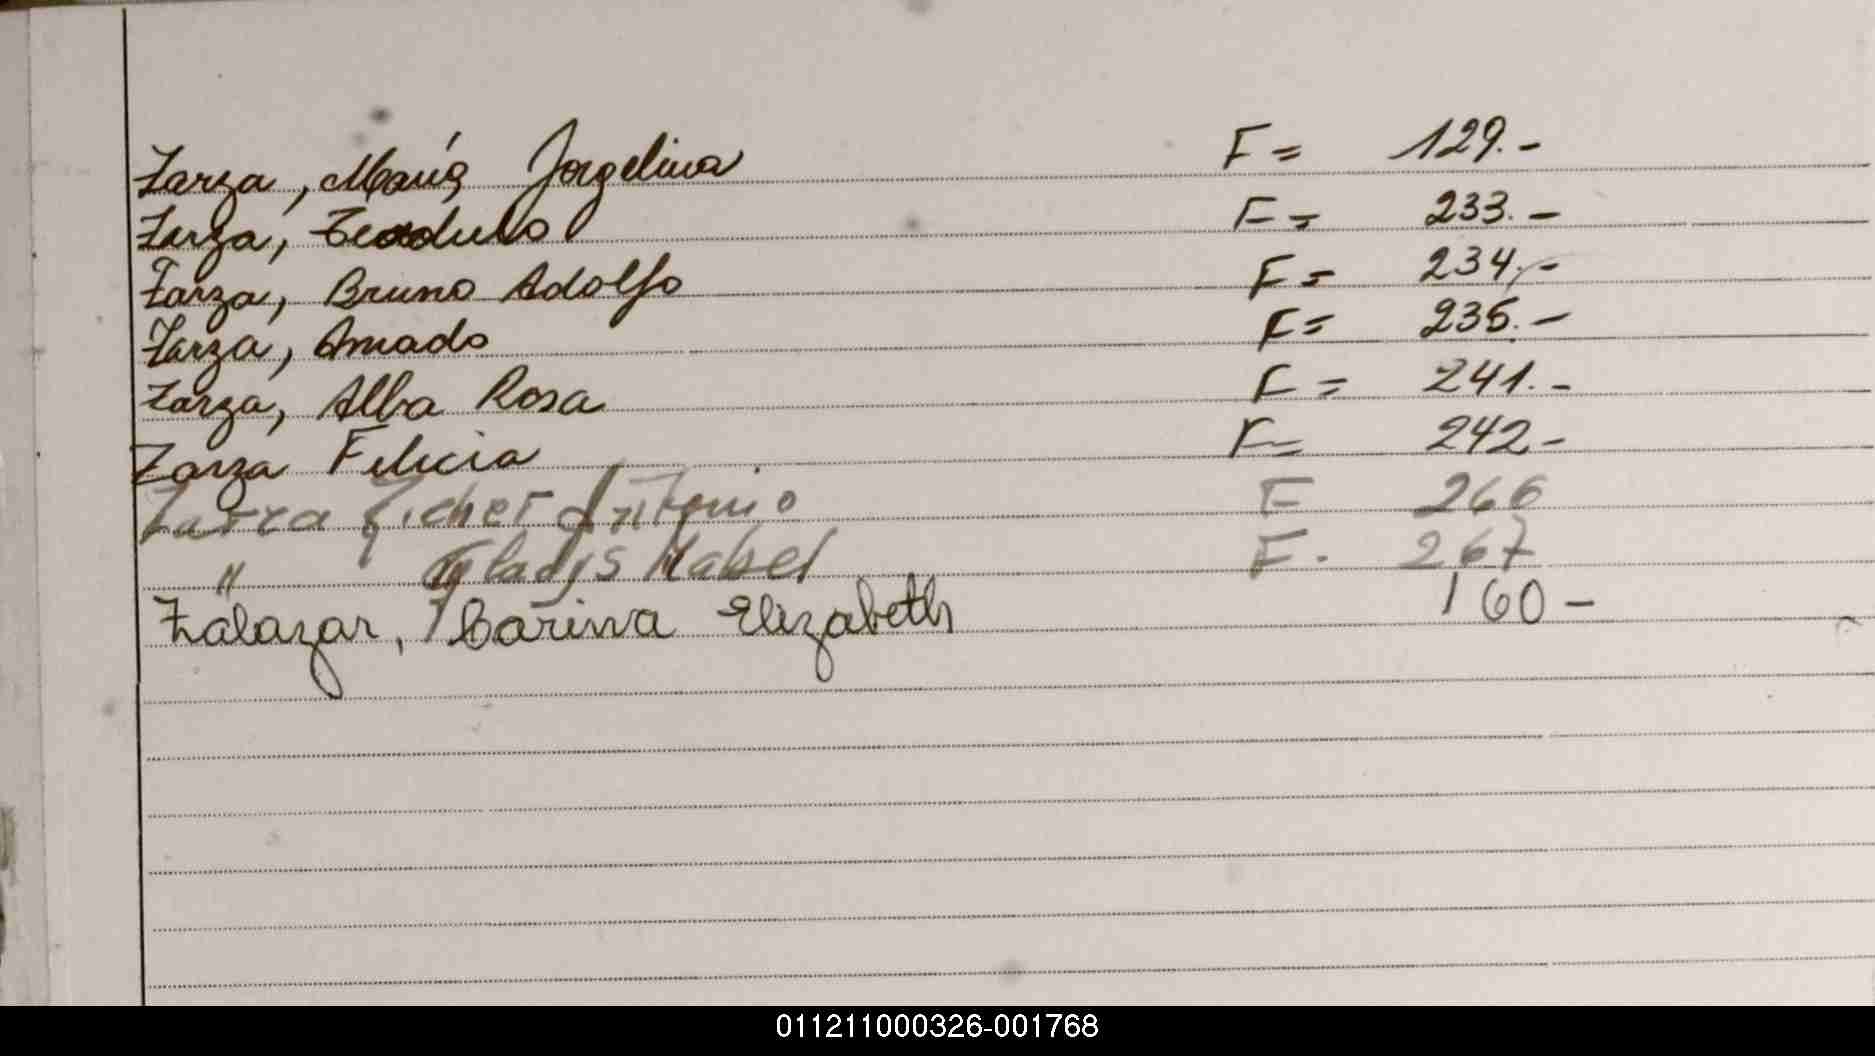 Zarza, María Jorgelina F= 129.-
Zarza, Teodulo F= 233.-
Zarza, Bruno Adolfo F= 234.-
Zarza, Amado F= 235.-
Zarza, Alba Rosa F= 241.-
Zarza Felicia F= 242-
Zarza Antonio F 266
" Gladys Mabel F. 267
Zalazar, Carina Elizabeth 160-
011211000326-001768